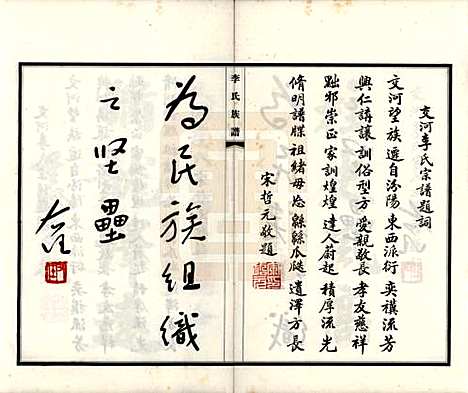 交河李氏宗譜題詞
交河望族遷自汾陽東西派衍奕禩流芳
興仁講讓訓俗型方愛親敬長孝友慈祥
黜邪崇正家訓煌煌達人蔚起積厚流光
脩明譜牒祖緒毋忘緜緜瓜瓞遺澤方長
宋哲元敬題
李氏族譜
為民族組織
之堅壘